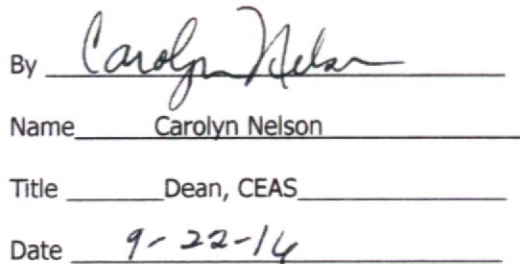 By Carolyn Nelson
Name Carolyn Nelson
Title Dean, CEAS
Date 9-22-16